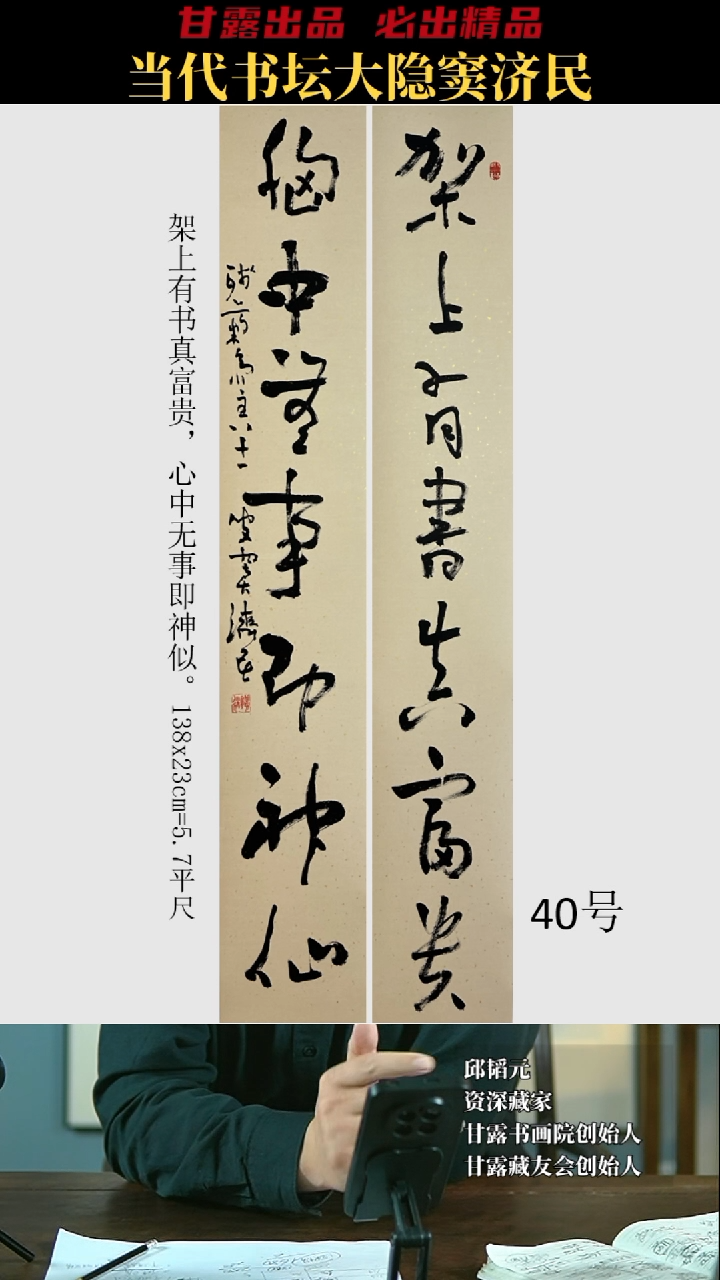 甘露出品 必出精品
当代书坛大隐窦济民
架上有書真富貴
胸中無事即神仙
主八十一叟竇濟民
架上有书真富贵，心中无事即神似。138x23cm=5.7平尺
40号
邱韬元
资深藏家
甘露书画院创始人
甘露藏友会创始人